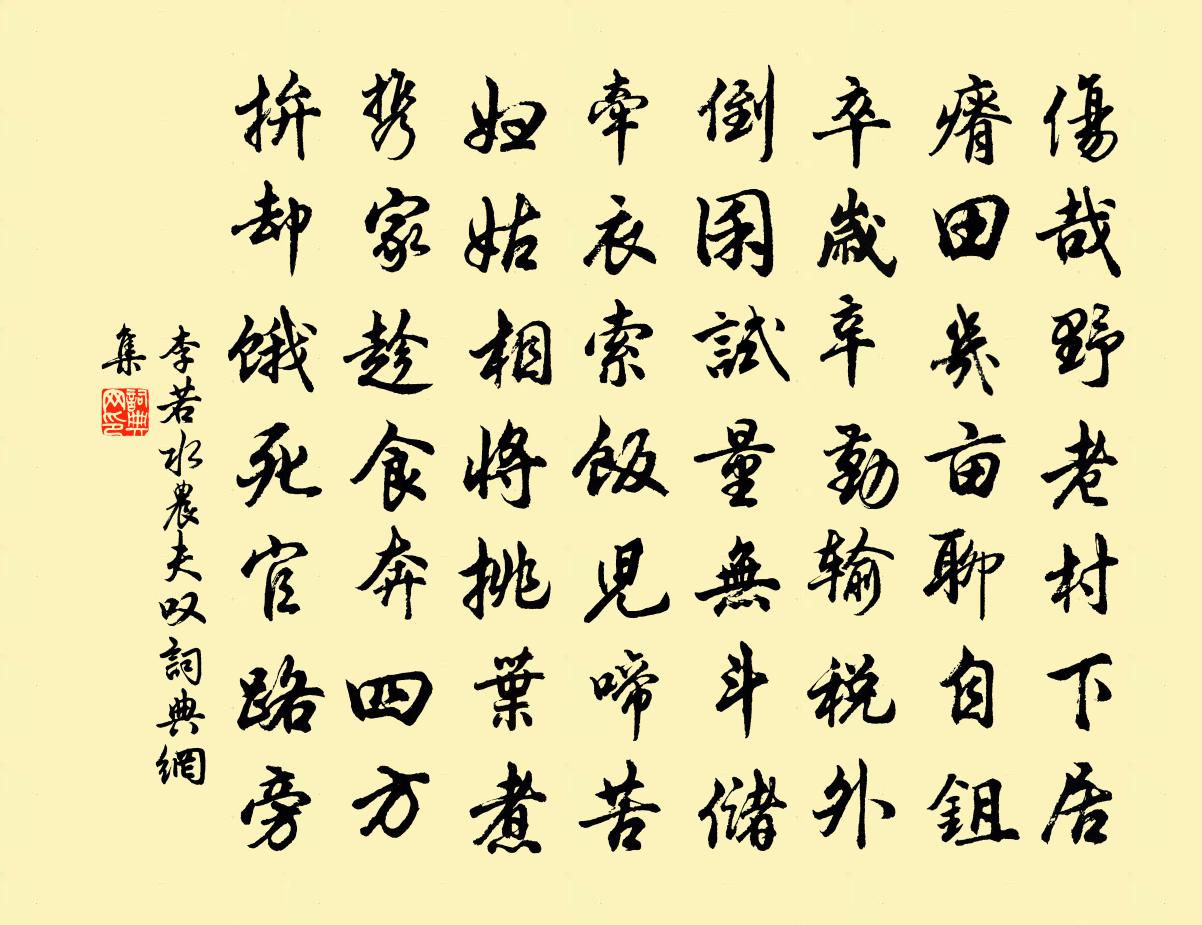 傷哉野老村下居
瘠田幾亩聊自鉏
卒歲辛勤輸税外
倒囷試量無斗儲
牽衣索飯兒啼苦
妇姑相將挑葉煮
携家趁食奔四方
拚却餓死官路旁
李若水農夫叹詞典網
集
詞典
网印